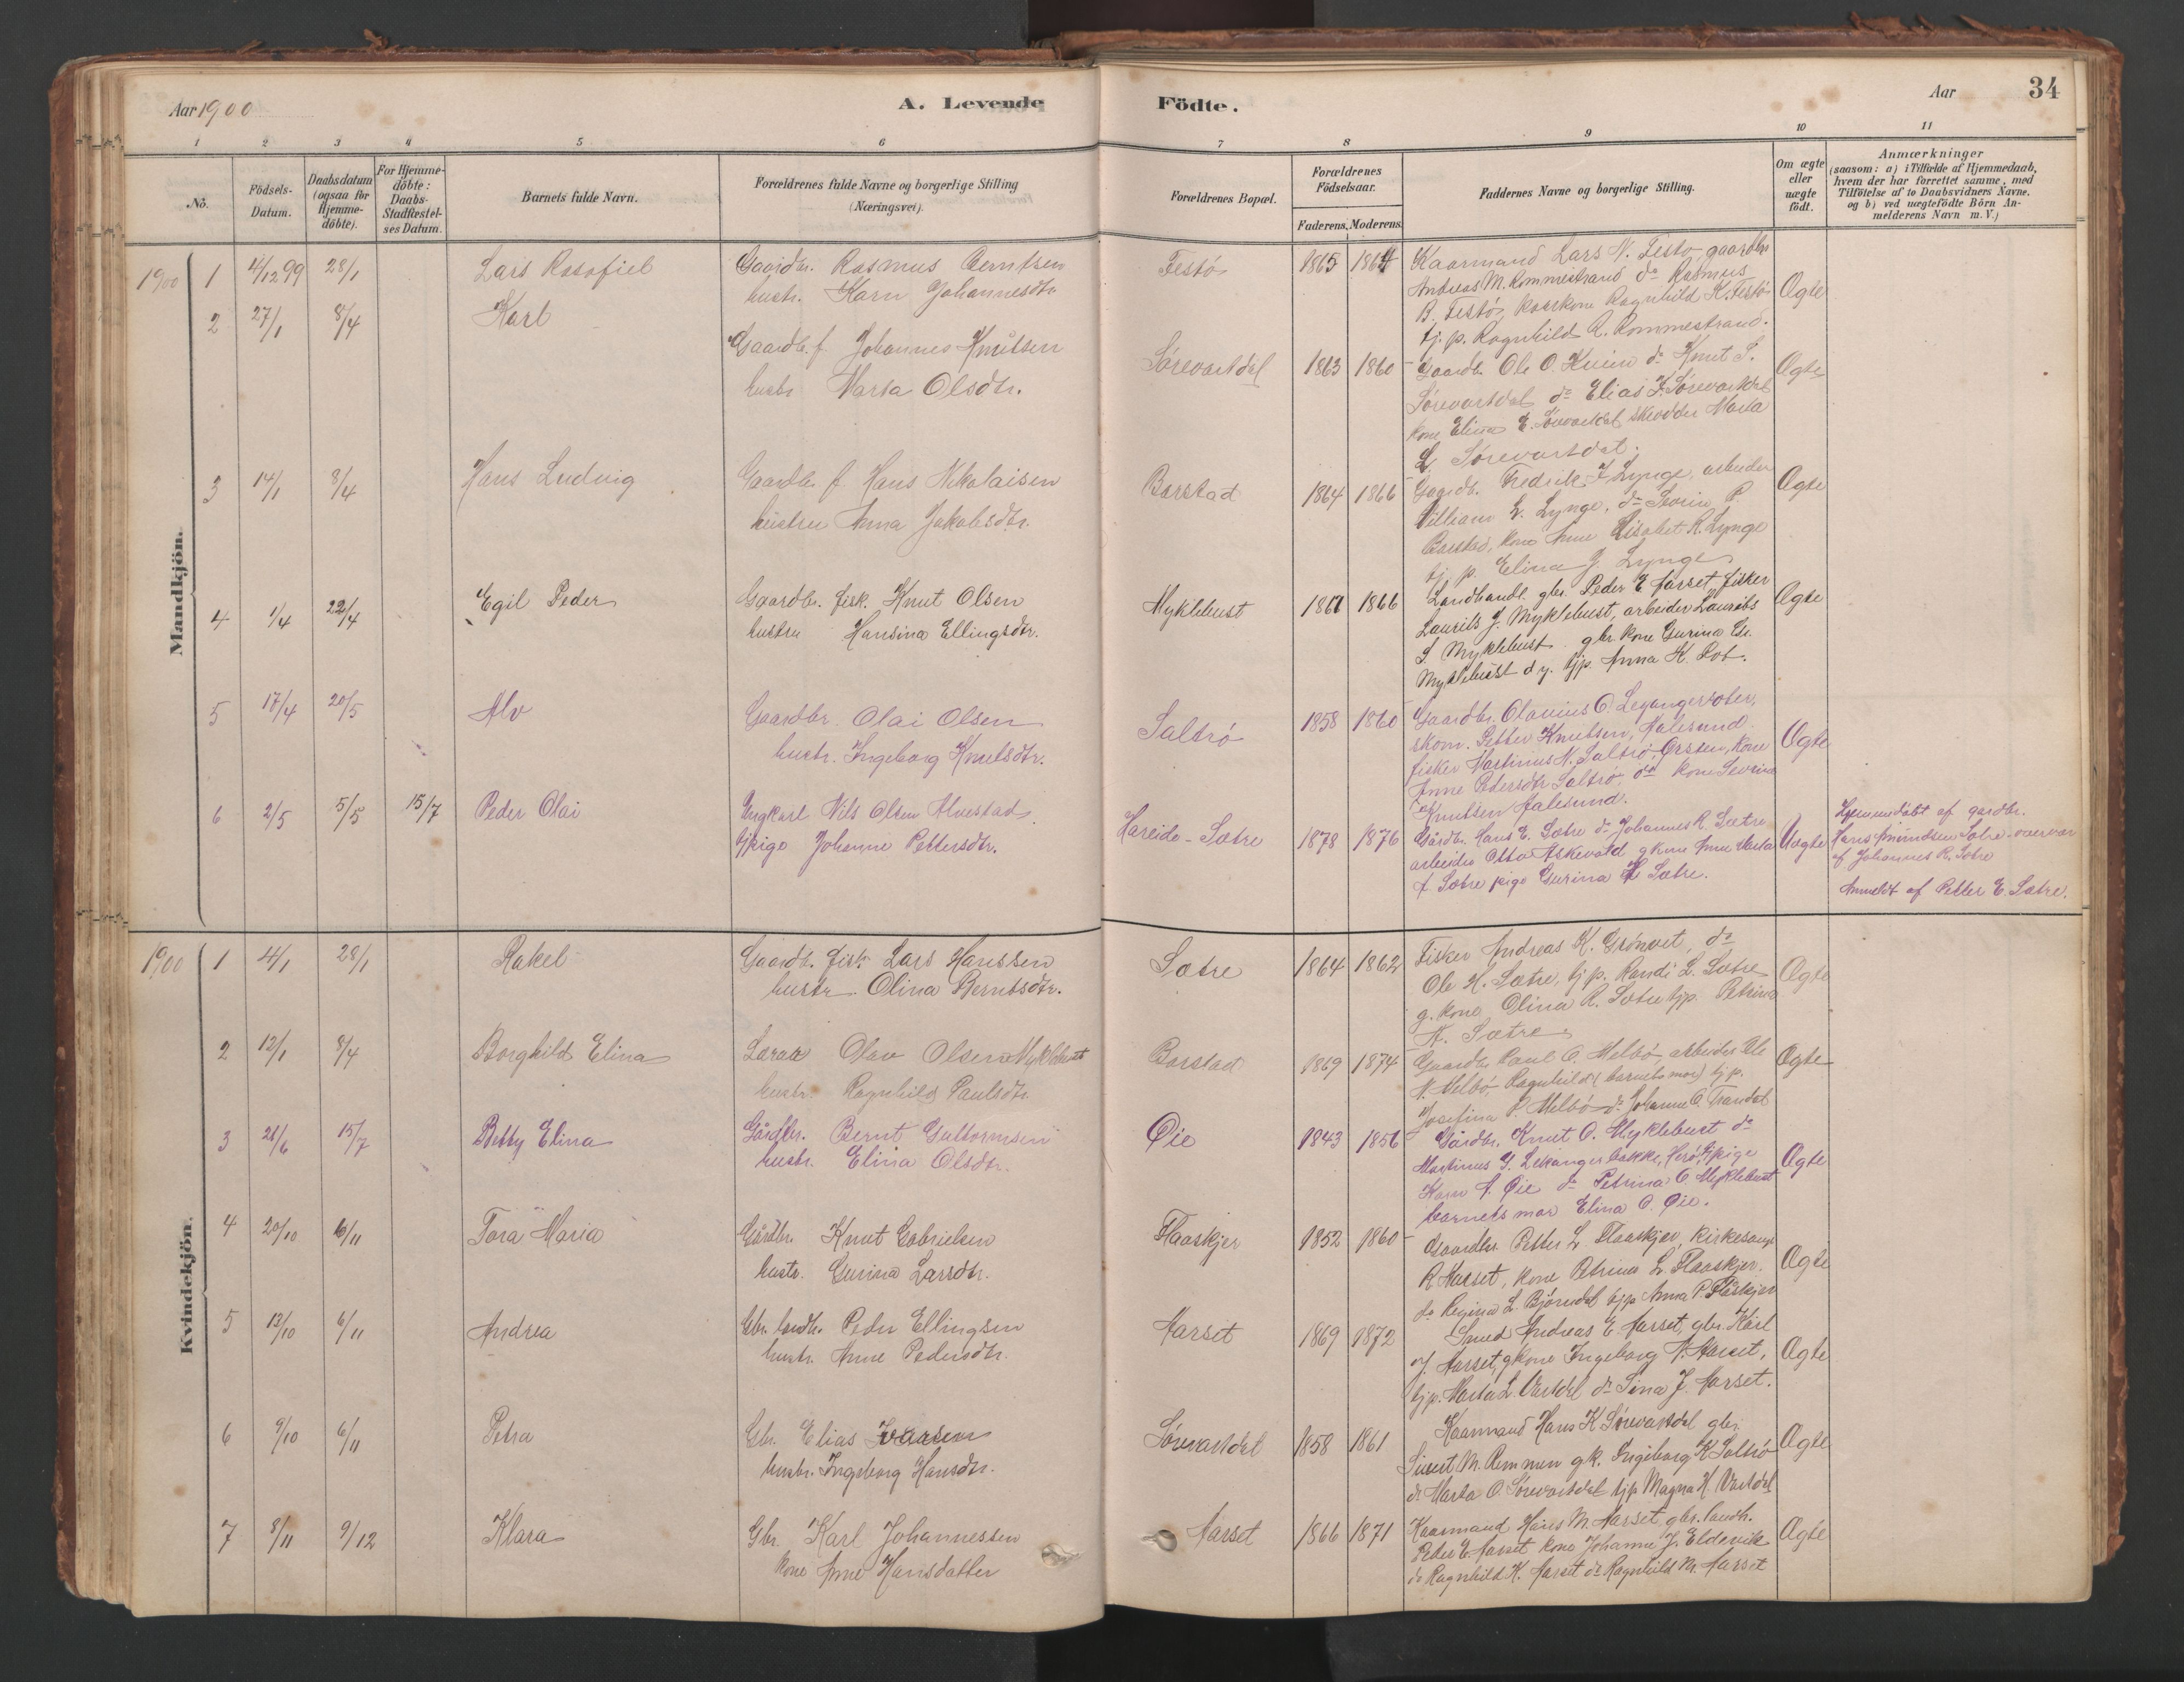 Aar 1900
A. Levende
Födte.
Aar
34
1 2 3 4 5 6 7 8 9 10 11
No.
Födsels-Datum.
Daabsdatum (ogsaa for Hjemmedöbte).
For Hjemmedöbte: Daabs-Stadfæstelses Datum.
Barnets fulde Navn.
Forældrenes fulde Navne og borgerlige Stilling (Næringsvei).
Forældrenes Bopæl.
Forældrenes Födselsaar.
Faderens. Moderens.
Faddernes Navne og borgerlige Stilling.
Om ægte eller uægte födt.
Anmærkninger
(saasom: a) i Tilfælde af Hjemmedaab,
hvem der har forrettet samme, med
Tilföielse af to Daabsvidners Navne.
og b) ved uægtefödte Börn An-
melderens Navn m. V.)
Mandkjön.
1900 1 4/12 99 28/1 Lars
Gaardbr. Rasmus Berntsen
hustr. Karn Johannesdtr
Festö 1865 1864
Kaarmand Lars N. Festö, gaardbr
Andreas M. Rommestrand do Rasmus
B. Festö, kaarkone Ragnhild K. Festö
tj. p. Ragnhild R. Rommestrand.
Ægte
2 27/1 8/4 Karl
Gaardb. f. Johannes Knutsen
hustr Marta Olsdtr.
Sörevartdal 1863 1860
Gaardb. Ole O. do Knut S.
Sörevartdal do Elias I. Sörevartdal
kone Elina E. Sörevartdal Marta
L. Sörevartdal.
Ægte
3 14/1 8/4 Hans Ludvig
Gaardb. f. Hans Nikolaisen
hustru Anna Jakobsdtr.
Barstad 1864 1866
Gaardb. Fredrik J Lynge, arbeider
Villiam E. Lynge, do Severin P.
Barstad, kone Anne Elisabet R. Lynge
tj. p. Elina J. Lynge
Ægte
4 1/4 22/4 Egil Peder
Gaardbr. fisk. Knut Olsen
hustru Hansina Ellingsdtr.
Myklebust 1866
Landhandl. gbr. Peder E Aarset, fisker
Laurits J. Myklebust, arbeider Laurits
S. Myklebust gbr. kone Gurina
Myklebust tjp. Anna K.
Ægte
5 17/4 20/5 Alv
Gaardbr. Olai Olsen
hustr. Ingeborg Knutsdtr.
Saltrö 1858 1860
Gaardbr. Olauius O.
skom. Petter Knutsen, Aalesund
fisker Martinus N. Saltrö, Örsten, kone
Anne Pedersdtr Saltrö, do kone Severina
Knutsen Aalesund.
Ægte
6 2/5 5/5 15/7 Peder Olai
Ungkarl Nils Olsen Alvestad
tj.pige Johanne Pettersdtr.
Hareide - Sætre 1878 1876
Gårdbr. Hans E. Sætre do Johannes R. Sætre
arbeider Otto Askevold gkone Anne Marta
A. Sætre pige Gurina Sætre.
Uægte
Hjemmedöbt af gardbr.
Hans Amundsen Sætre - overvær
af Johannes R. Sætre
Anmeldt af Petter E. Sætre.
Kvindekjön.
1900 1 4/1 28/1 Rakel
Gaardb. fisk Lars Hanssen
hustr. Olina Berntsdtr.
Sætre 1864 1862
Fisker Andreas K. Grönvet, do
Ole H. Sætre, tj p. Randi L. Sætre
g. kone Olina R. Sætre tjp. Petrina
A. Sætre
Ægte
2 12/1 8/4 Borghild Elina
Lærar Olav Olsen Myklebust
hustr. Ragnhild Paulsdtr.
Barstad 1869 1874
Gaardbr. Paul O. Melbö, arbeider Ole
N. Melbö, Ragnhild (barnets mor) tj p.
Josefina P. Melbö do Johanne O. Frandal
Ægte
3 28/6 15/7 Betty Elina
Gårdbr. Bernt Guttormsen
hustr. Elina Olsdtr.
Öie 1843 1856
Gårdbr. Knut O. Myklebust do
Martinus G. Leikangerbakke, Herö, tj.pige
Karn A. Öie do Petrina O Myklebust
barnets mor Elina O. Öie.
Ægte
4 20/10 6/11 Tora Maria
Gårdbr. Knut Gabrielsen
hustr. Gurina Larsdtr.
Flaaskjer 1852 1860
Gaardbr. Petter L. Flaaskjer, kirkesang
R Aarset, kone Petrina L. Flaaskjer.
do Regina L. Björndal tjp Anna P. Flåskjer
Ægte
5 13/10 6/11 Andrea
Gbr. landh. Peder Ellingsen
hustr. Anne Pedersdtr.
Aarset 1869 1872
Smed Andreas E. Aarset, gbr. Karl
J. Aarset, gkone Ingeborg A. Aarset,
tj p. Marta L. Vartdal do Sina J. Aarset.
Ægte
6 9/10 6/11 Petra
Gbr. Elias Ivarsen
hustr. Ingeborg Hansdtr.
Sörevartdal 1858 1861
Kaarmand Hans K Sörevartdal gbr.
Sivert M. Remmen gk. Ingeborg K Saltrö
do Marta O. Sörevartdal tjp Magna H. Vartdal
Ægte
7 8/11 9/12 Klara
Gbr. Karl Johannessen
kone Anne Hansdatter
Aarset 1866 1871
Kaarmand Hans M. Aarset gbr. landh.
Peder E. Aarset kone Johanne J. Eldervik
do Ragnhild K. Aarset do Ragnhild M. Aarset
Ægte